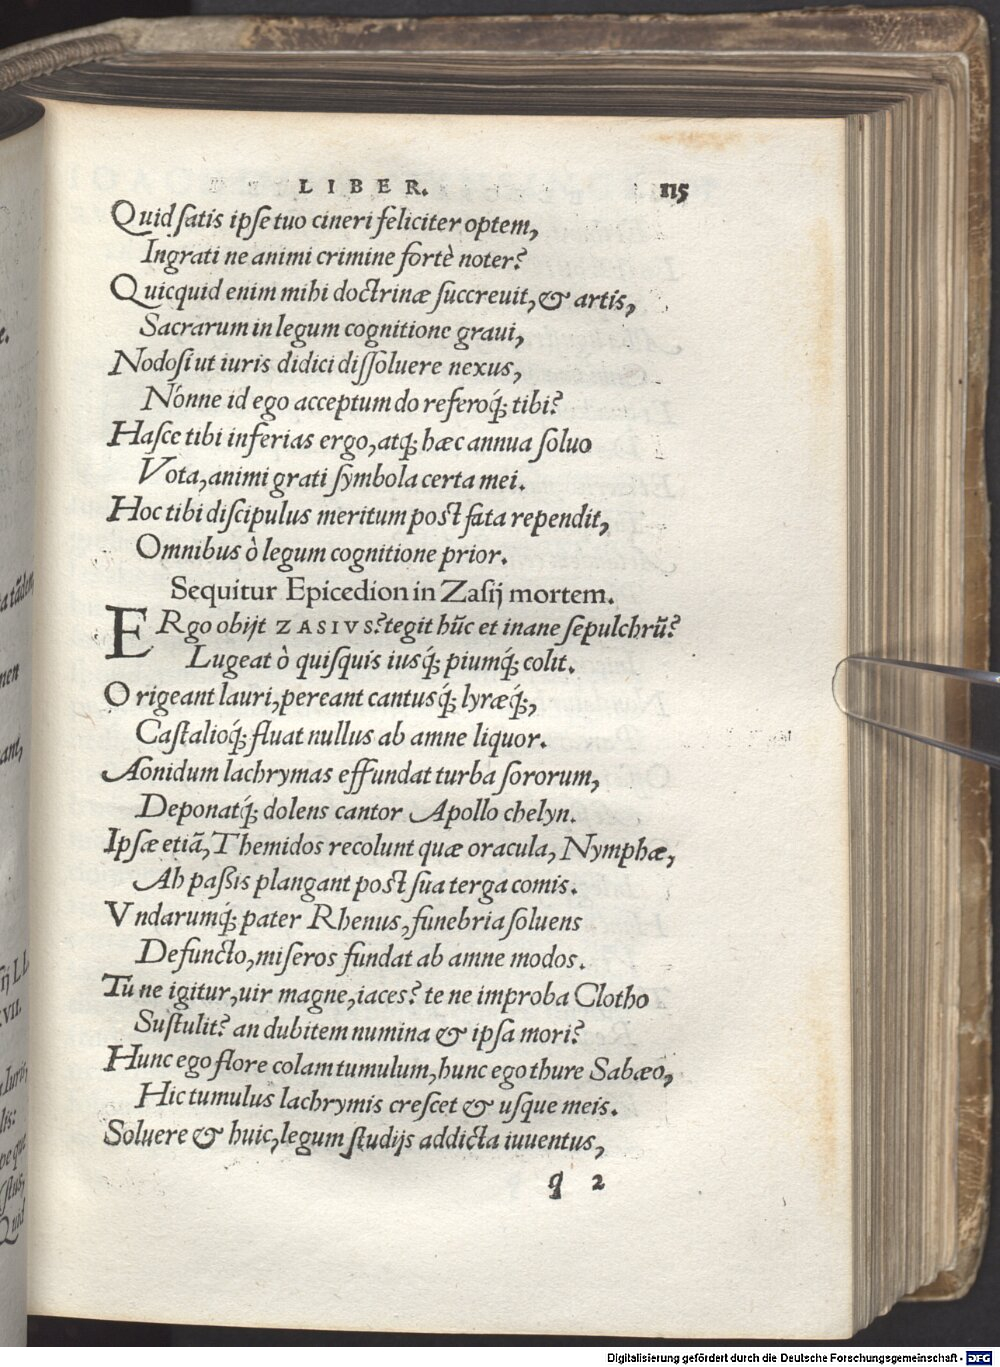 LIBER. 115
Quid ſatis ipſe tuo cineri feliciter optem,
Ingrati ne animi crimine fortè noter?
Quicquid enim mihi doctrinæ ſuccreuit, & artis,
Sacrarum in legum cognitione graui,
Nodoſi ut iuris didici diſſoluere nexus,
Nónne id ego acceptum do referoq́; tibi?
Haſce tibi inferias ergo, atq; hæc annua ſoluo
Vota, animi grati ſymbola certa mei.
Hoc tibi diſcipulus meritum poſt fata rependit,
Omnibus ò legum cognitione prior.
Sequitur Epicedion in Zaſij mortem.
ERgo obijt ZASIVS? tegit hũc et inane ſepulchrũ?
Lugeat ò quiſquis iusq́; piumq́; colit.
O rigeant lauri, pereant cantusq́; lyræq́;,
Caſtalioq́; fluat nullus ab amne liquor.
Aonidum lachrymas effundat turba ſororum,
Deponatq́; dolens cantor Apollo chelyn.
Ipſæ etiã, Themidos recolunt quæ oracula, Nymphæ,
Ah paßis plangant poſt ſua terga comis.
Vndarumq́; pater Rhenus, funebria ſoluens
Defuncto, miſeros fundat ab amne modos.
Tú ne igitur, uir magne, iaces? te ne improba Clotho
Suſtulit? an dubitem numina & ipſa mori?
Hunc ego flore colam tumulum, hunc ego thure Sabæo,
Hic tumulus lachrymis creſcet & uſque meis.
Soluere & huic, legum ſtudijs addicta iuuentus,
q 2
Digitalisierung gefördert durch die Deutsche Forschungsgemeinschaft - DFG